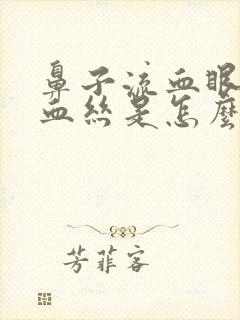 鼻子流血眼
血丝是怎麼
芳菲客